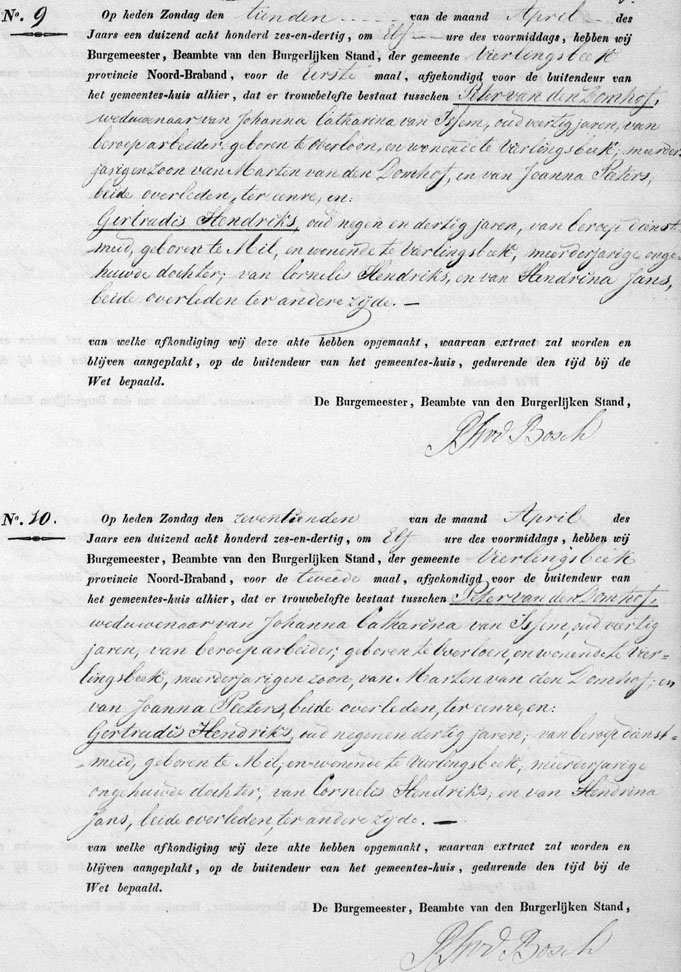 No. 9 Op heden Zondag den tienden van de maand April des
Jaars een duizend acht honderd zes-en-dertig, om Elf ure des voormiddags, hebben wij
Burgemeester, Beambte van den Burgerlijken Stand, der gemeente Vierlingsbeek
provincie Noord-Braband, voor de Eerste maal, afgekondigd voor de buitendeur van
het gemeentes-huis alhier, dat er trouwbelofte bestaat tusschen Peter van den Domhof,
weduwenaar van Johanna Catharina van Issem, oud veertig jaren, van
beroep arbeider, geboren te Overloon, en wonende te Vierlingsbeek, meerder-
jarigen zoon van Marten van den Domhof, en van Joanna Peters,
beide overleden, ter eenre, en:
Gertrudis Hendriks, oud negen en dertig jaren, van beroep dienst-
meid, geboren te Mil, en wonende te Vierlingsbeek, meerderjarige onge-
huwde dochter; van Cornelis Hendriks, en van Hendrina Jans,
beide overleden ter andere zijde. —
van welke afkondiging wij deze akte hebben opgemaakt, waarvan extract zal worden en
blijven aangeplakt, op de buitendeur van het gemeentes-huis, gedurende den tijd bij de
Wet bepaald.
De Burgemeester, Beambte van den Burgerlijken Stand,
Bosch
No. 10. Op heden Zondag den zeventienden van de maand April des
Jaars een duizend acht honderd zes-en-dertig, om Elf ure des voormiddags, hebben wij
Burgemeester, Beambte van den Burgerlijken Stand, der gemeente Vierlingsbeek
provincie Noord-Braband, voor de tweede maal, afgekondigd voor de buitendeur van
het gemeentes-huis alhier, dat er trouwbelofte bestaat tusschen Peter van den Domhof,
weduwenaar van Johanna Catharina van Issem, oud veertig
jaren, van beroep arbeider, geboren te Overloen, en wonende te Vier-
lingsbeek, meerderjarigen zoon, van Marten van den Domhof, en
van Joanna Peeters, beide overleden, ter eenre, en:
Gertrudis Hendriks, oud negen en dertig jaren; van beroep dienst-
meid, geboren te Mil, en wonende te Vierlingsbeek, meerderjarige
ongehuwde dochter, van Cornelis Hendriks, en van Hendrina
Jans, beide overleden, ter andere zijde. —
van welke afkondiging wij deze akte hebben opgemaakt, waarvan extract zal worden en
blijven aangeplakt, op de buitendeur van het gemeentes-huis, gedurende den tijd bij de
Wet bepaald.
De Burgemeester, Beambte van den Burgerlijken Stand,
Bosch